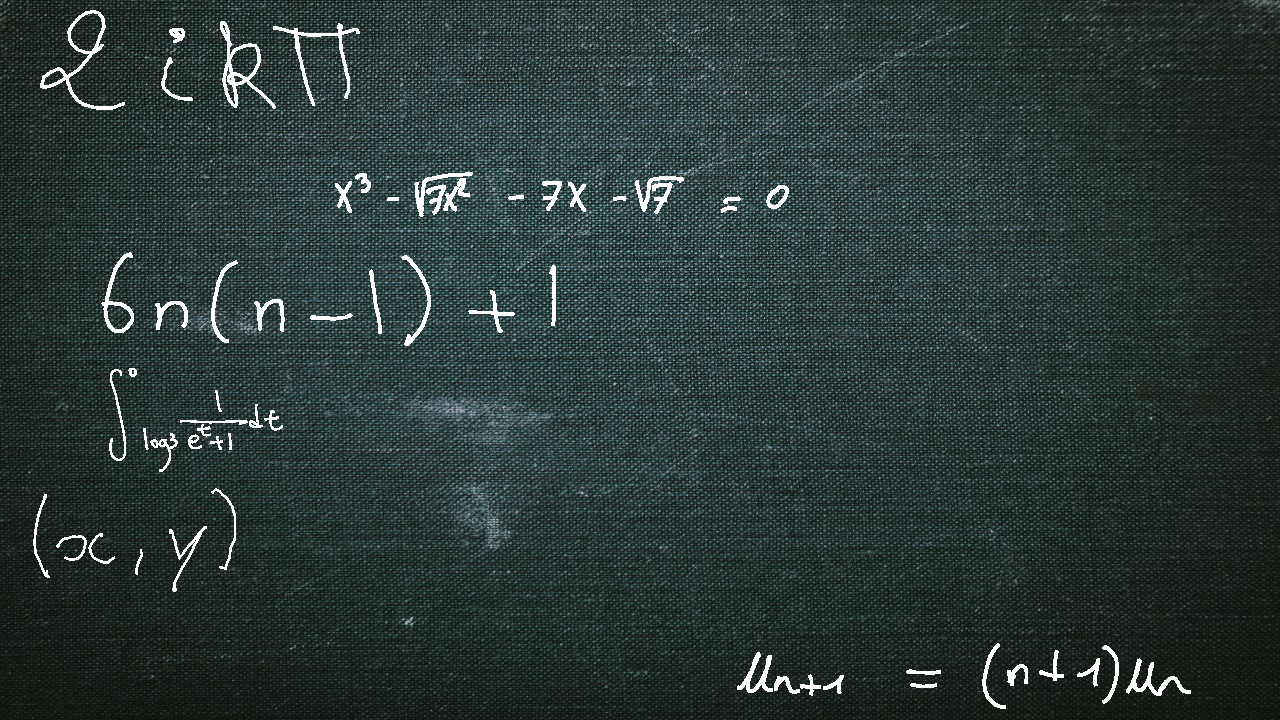 2ikπ
x³ - √7x² - 7x - √7 = 0
6n(n-1)+1
∫⁰_log3 1/(e^t+1) dt
(x, y)
u_{n+1} = (n+1)u_n